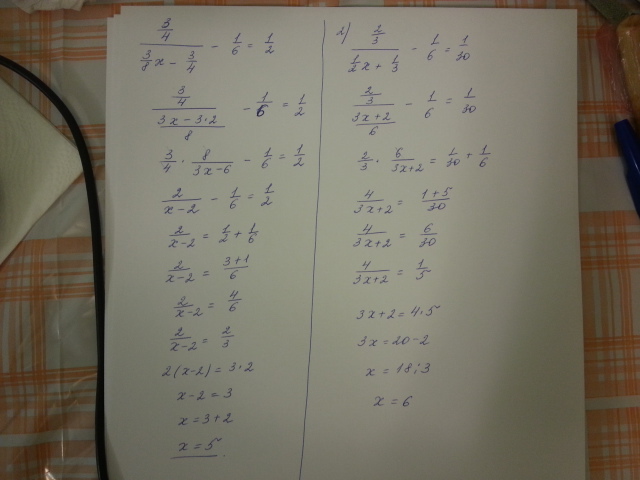 (3/4)/(3/8 x - 3/4) - 1/6 = 1/2
(3/4)/((3x - 3·2)/8) - 1/6 = 1/2
3/4 · 8/(3x-6) - 1/6 = 1/2
2/(x-2) - 1/6 = 1/2
2/(x-2) = 1/2 + 1/6
2/(x-2) = (3+1)/6
2/(x-2) = 4/6
2/(x-2) = 2/3
2(x-2) = 3·2
x-2 = 3
x = 3+2
x = 5
2) (2/3)/(1/2 x + 1/3) - 1/6 = 1/30
(2/3)/((3x+2)/6) - 1/6 = 1/30
2/3 · 6/(3x+2) = 1/30 + 1/6
4/(3x+2) = (1+5)/30
4/(3x+2) = 6/30
4/(3x+2) = 1/5
3x+2 = 4·5
3x = 20-2
x = 18:3
x = 6